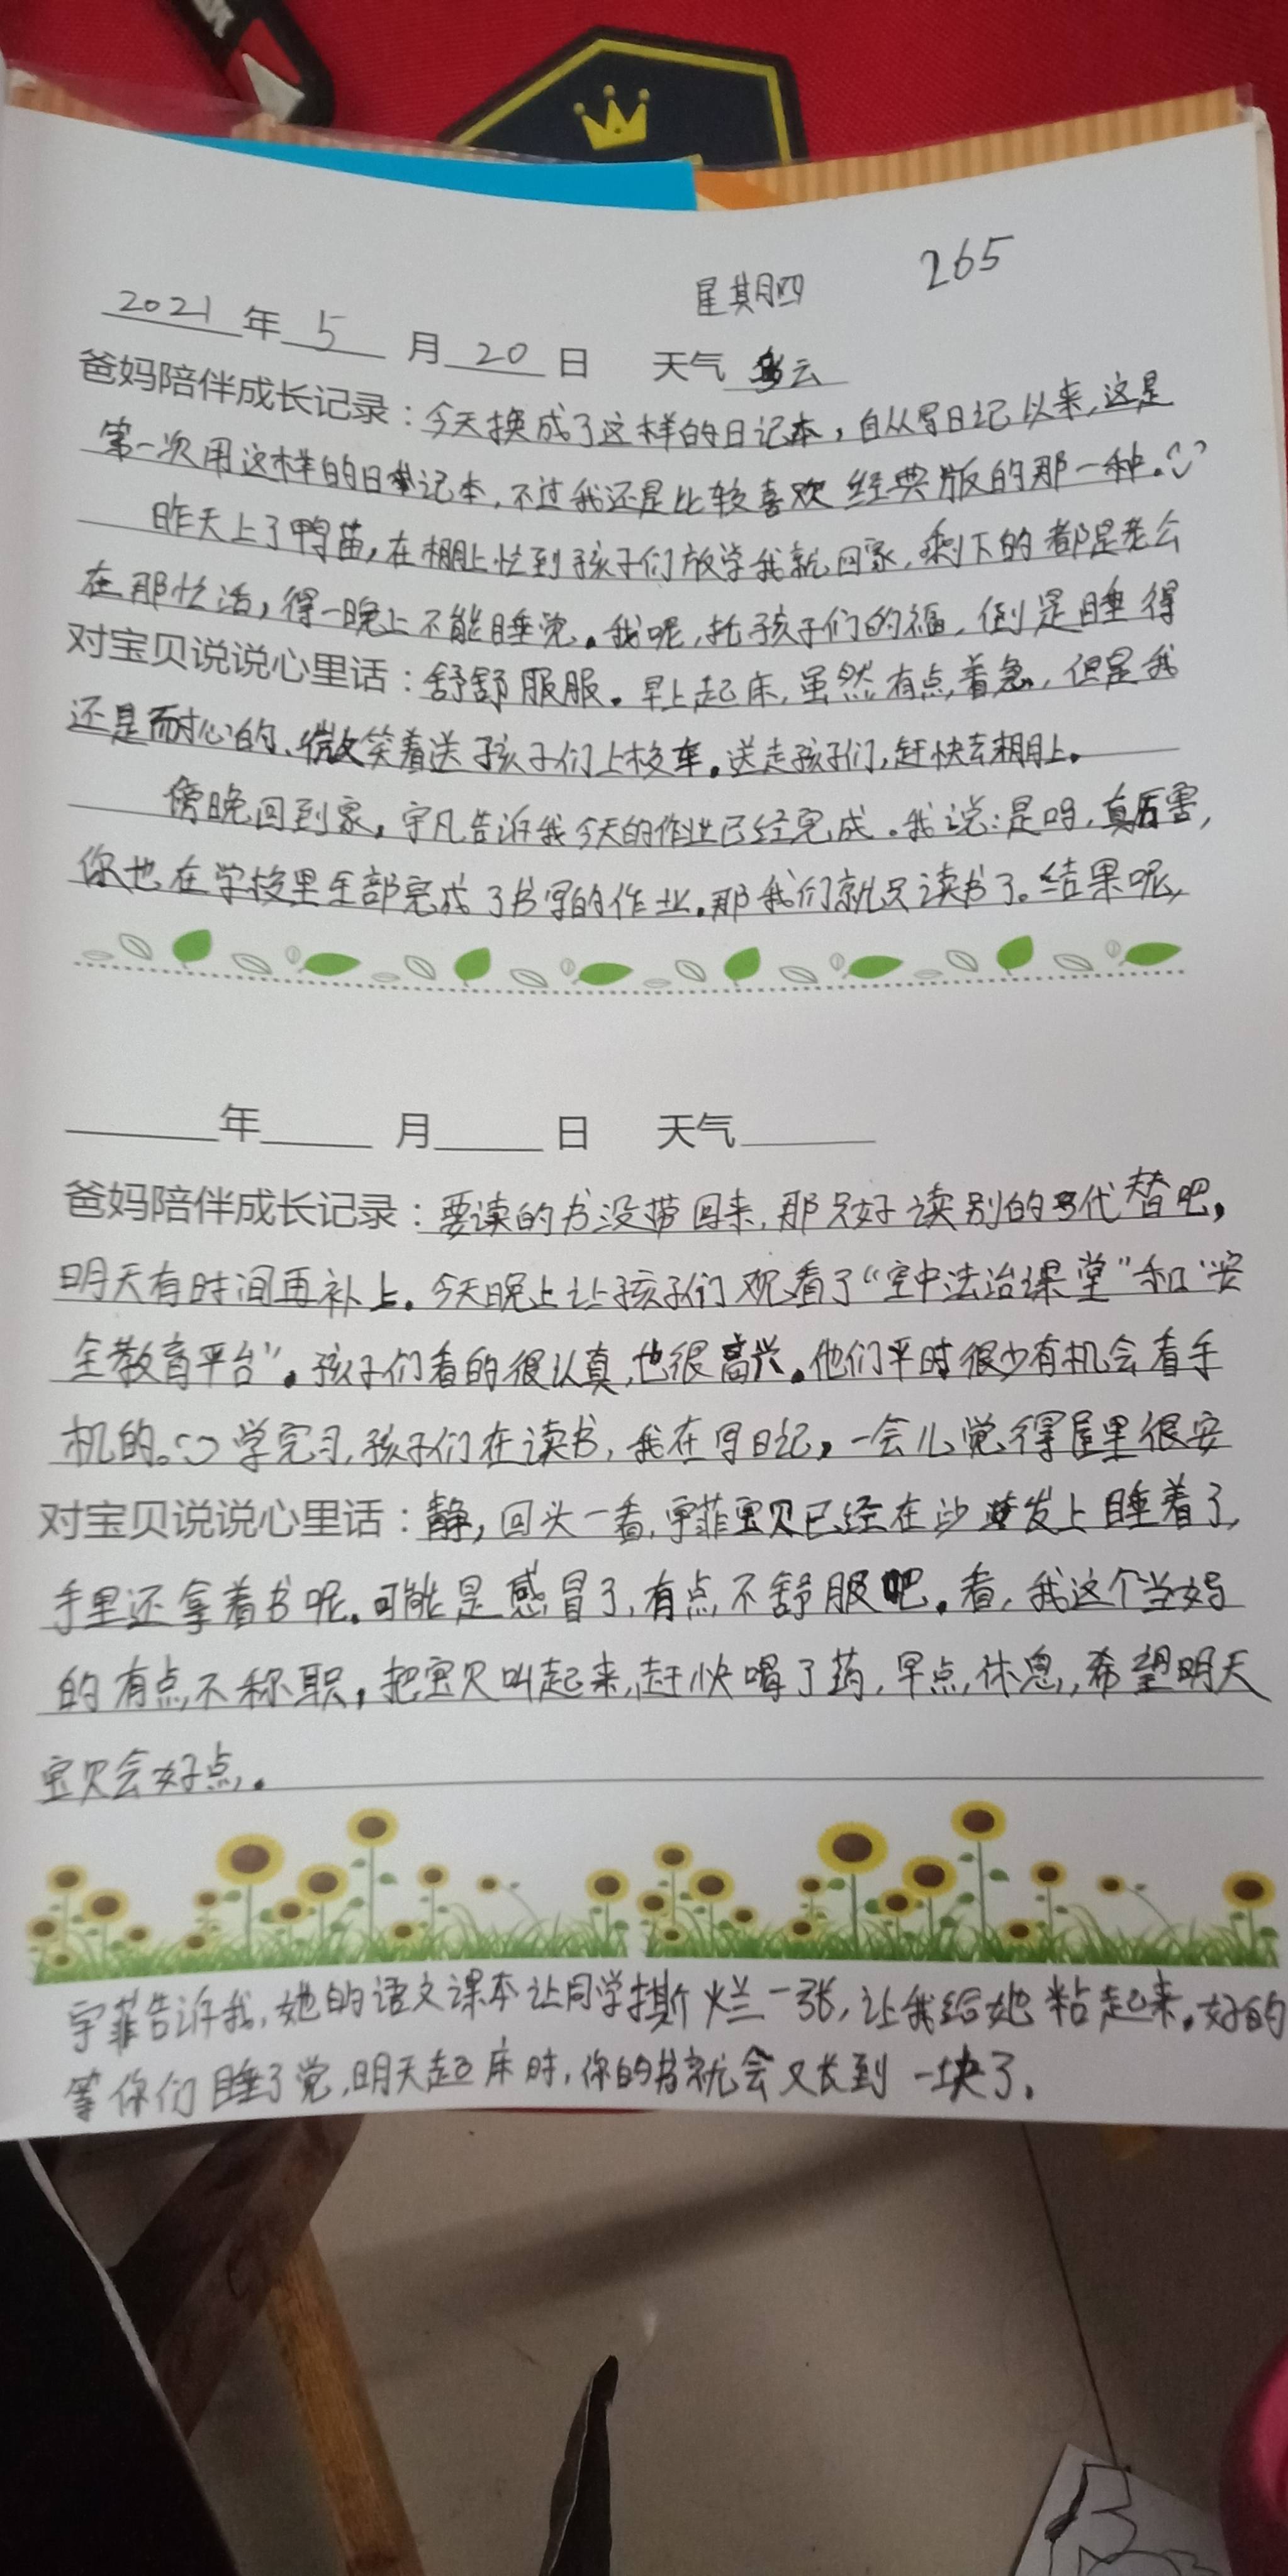 265
星期四
2021年5月20日 天气 多云
爸妈陪伴成长记录：今天换成了这样的日记本，自从写日记以来，这是
第一次用这样的日记本，不过我还是比较喜欢经典版的那一种。
昨天上了鸭苗，在棚上忙到孩子们放学我就回家，剩下的都是老公
在那忙活，得一晚上不能睡觉。我呢，托孩子们的福，倒是睡得
对宝贝说说心里话：舒舒服服。早上起床，虽然有点着急，但是我
还是耐心的、微笑着送孩子们上校车。送走孩子们，赶快去棚上。
傍晚回到家，宇凡告诉我今天的作业已经完成。我说：是吗，真厉害，
你也在学校里全部完成了书写的作业。那我们就只读书了。结果呢，
年 月 日 天气
爸妈陪伴成长记录：要读的书没带回来，那只好读别的书代替吧，
明天有时间再补上。今天晚上让孩子们观看了“空中法治课堂”和“安
全教育平台”。孩子们看的很认真，也很高兴。他们平时很少有机会看手
机的。学完习，孩子们在读书，我在写日记，一会儿觉得屋里很安
对宝贝说说心里话：静，回头一看，宇菲宝贝已经在沙发上睡着了，
手里还拿着书呢。可能是感冒了，有点不舒服吧。看，我这个当妈
的有点不称职，把宝贝叫起来，赶快喝了药，早点休息，希望明天
宝贝会好点。
宇菲告诉我，她的语文课本让同学撕烂一张，让我给她粘起来。好的
等你们睡了觉，明天起床时，你的书就会又长到一块了。